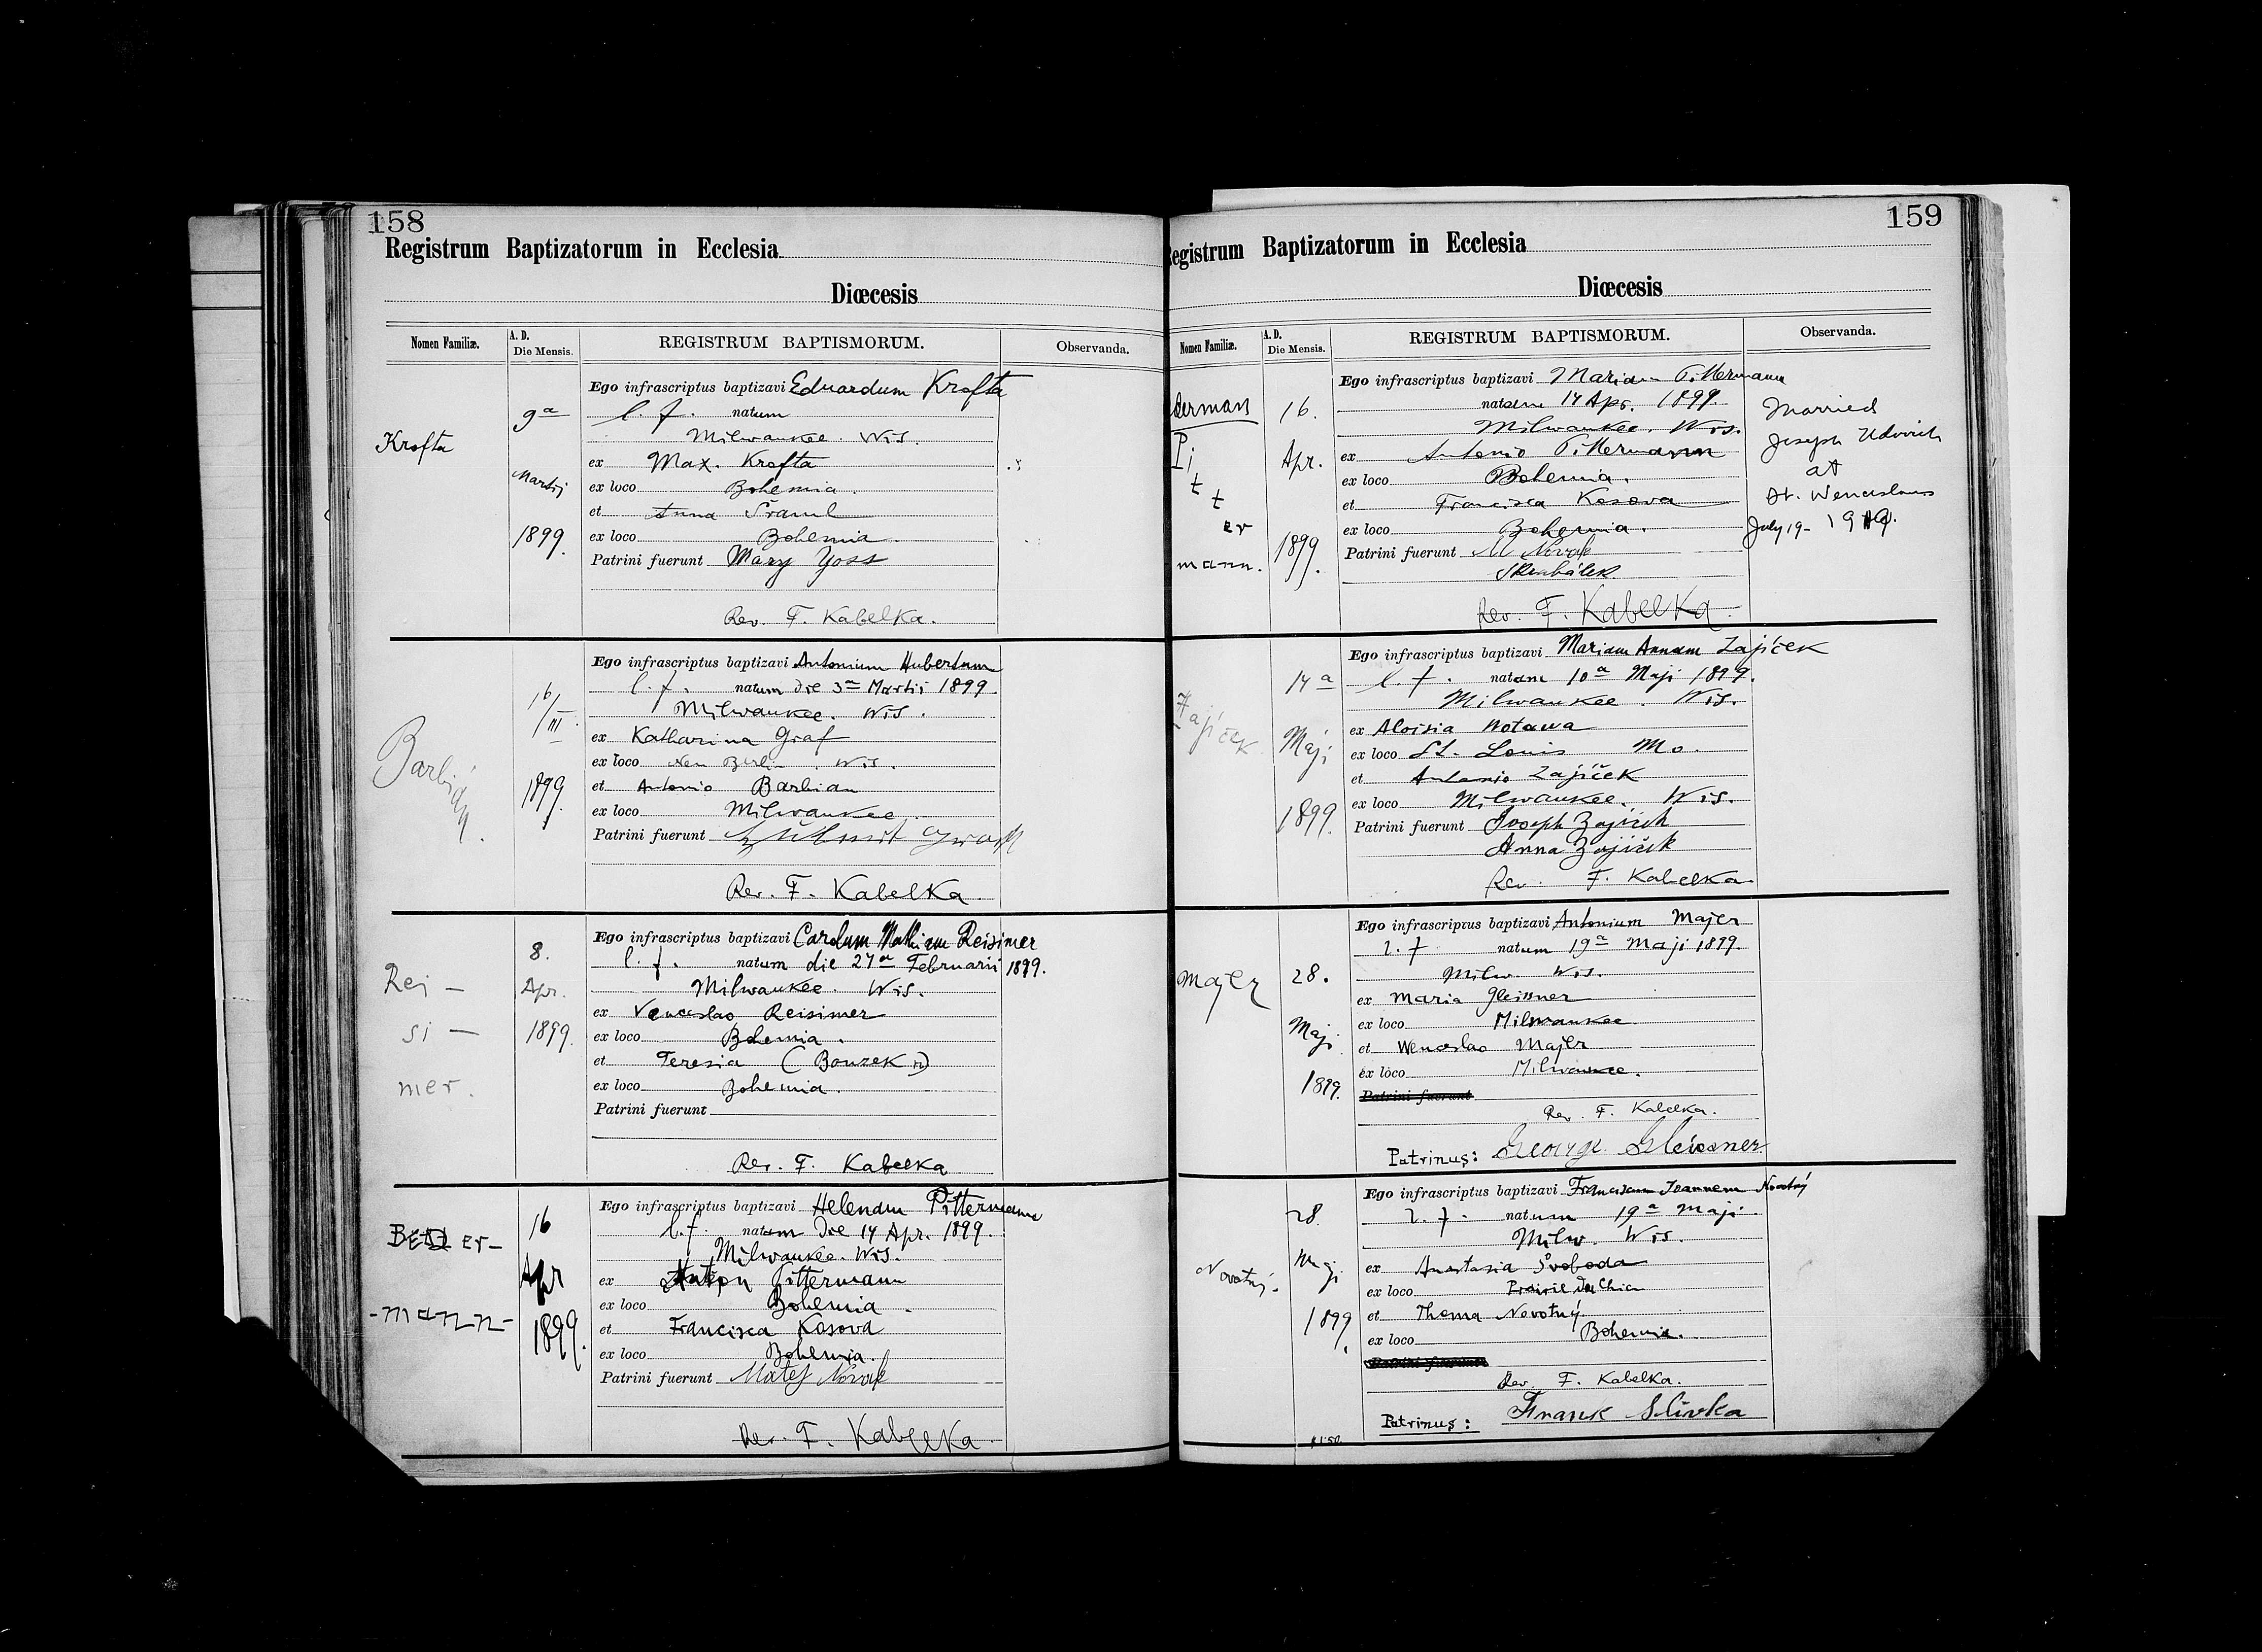 158
Registrum Baptizatorum in Ecclesia
Diœcesis
Nomen Familiæ.
A. D.
Die Mensis.
REGISTRUM BAPTISMORUM.
Observanda.
Krofta
9a
Martij
1899.
Ego infrascriptus baptizavi Eduardum Krofta
l. f. natum
Milwaukee. Wis.
ex Max. Krofta
ex loco Bohemia.
et Anna Šraml
ex loco Bohemia.
Patrini fuerunt Mary Yoss
Rev. F. Kabelka.
Barbian.
16/III.
1899.
Ego infrascriptus baptizavi Antonium Hubertum
l. f. natum die 3a Martii 1899.
Milwaukee. Wis.
ex Katharina Graf
ex loco New Berlin. Wis.
et Antonio Barbian
ex loco Milwaukee.
Patrini fuerunt
Rev. F. Kabelka.
Rei-
si-
mer.
8.
Apr.
1899.
Ego infrascriptus baptizavi Carolum Mathiam Reisimer
l. f. natum die 27a Februarii 1899.
Milwaukee. Wis.
ex Venceslao Reisimer
ex loco Bohemia.
et Teresia (Bouzek)
ex loco Bohemia.
Patrini fuerunt
Rev. F. Kabelka
er-
-mann-
16
Apr
1899.
Ego infrascriptus baptizavi Helenam Pittermann
l. f. natam die 14 Apr. 1899.
Milwaukee. Wis.
ex Anton Pittermann
ex loco Bohemia.
et Francisca Kosova
ex loco Bohemia.
Patrini fuerunt Matej Novak
Rev. F. Kabelka.
159
Registrum Baptizatorum in Ecclesia
Diœcesis
Nomen Familiæ.
A. D.
Die Mensis.
REGISTRUM BAPTISMORUM.
Observanda.
derman
Pi
t
t
er
mann.
16.
Apr.
1899.
Ego infrascriptus baptizavi Mariam Pittermann
natam 14 Apr. 1899.
Milwaukee. Wis.
ex Antonio Pittermann
ex loco Bohemia.
et Francisca Kosova
ex loco Bohemia.
Patrini fuerunt M Novak
Skrabálek
Rev. F. Kabelka.
Married
Joseph Udovich
at
St. Wenceslaus
July 19-
Zajíček
14a
Maji
1899.
Ego infrascriptus baptizavi Mariam Annam Zajíček
l. f. natam 10a Maji 1899.
Milwaukee. Wis.
ex Aloisia Wotawa
ex loco St. Louis Mo.
et Antonio Zajíček
ex loco Milwaukee. Wis.
Patrini fuerunt Joseph Zajíček
Anna Zajíček
Rev. F. Kabelka
Majer
28.
Maji
1899.
Ego infrascriptus baptizavi Antonium Majer
l. f. natum 19a Maji 1899.
Milw. Wis.
ex Maria Gleissner
ex loco Milwaukee
et Wenceslao Majer
ex loco Milwaukee.
Patrini fuerunt
Rev. F. Kabelka.
Patrinus: George Gleissner
Novotný.
28.
Maji
1899.
Ego infrascriptus baptizavi Franciscum Joannem Novotný
l. f. natum 19a Maji.
Milw. Wis.
ex Anastasia Svoboda
ex loco Prairie Du Chien
et Thoma Novotný
ex loco Bohemia.
Patrini fuerunt
Rev. F. Kabelka.
Patrinus: Frank Slivka
$1.50.